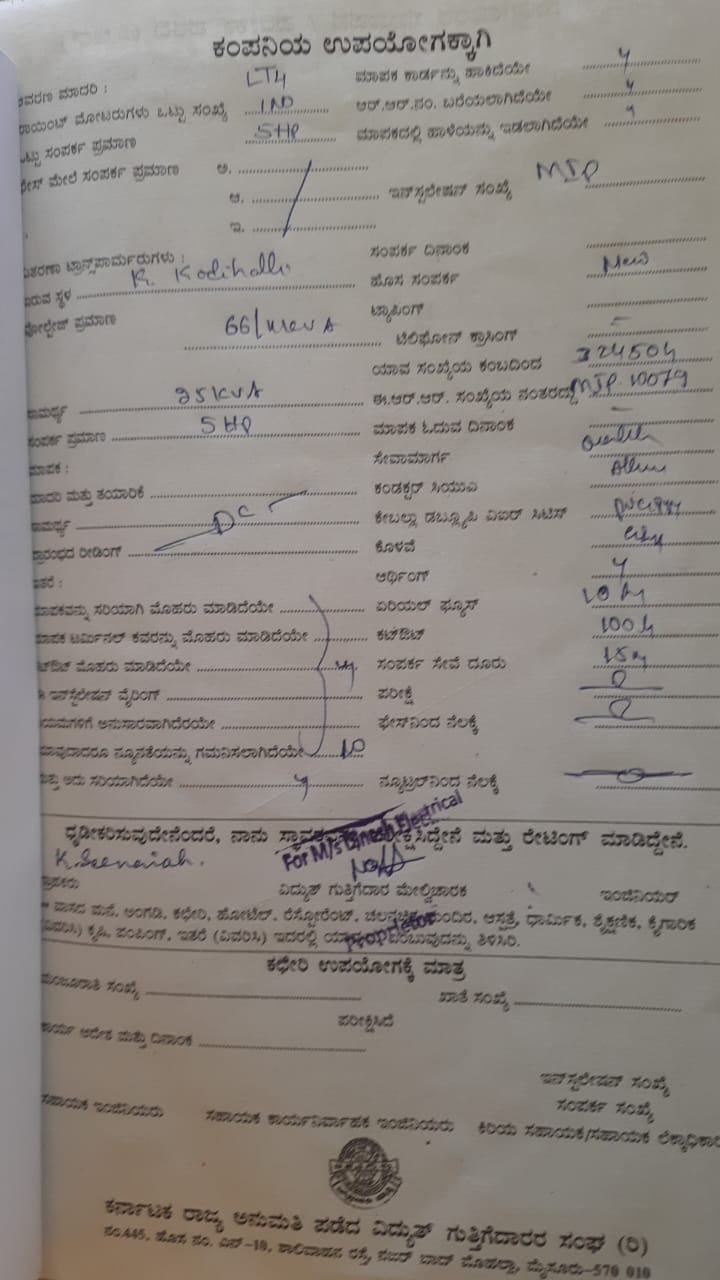 ಕಂಪನಿಯ ಉಪಯೋಗಕ್ಕಾಗಿ
ಮಾದರಿ : LT4 ಮಾಪಕ ಕಾರ್ಡನ್ನು ಹಾಕಿದೆಯೇ y
ಮೋಟರುಗಳು ಒಟ್ಟು ಸಂಖ್ಯೆ 1 No ಆರ್.ಆರ್.ನಂ. ಬರೆಯಲಾಗಿದೆಯೇ y
ಸಂಪರ್ಕ ಪ್ರಮಾಣ 5HP ಮಾಪಕದಲ್ಲಿ ಹಾಳೆಯನ್ನು ಇಡಲಾಗಿದೆಯೇ y
ಮೇಲೆ ಸಂಪರ್ಕ ಪ್ರಮಾಣ ಅ.
ಆ. ಇನ್‌ಸ್ಟಲೇಷನ್ ಸಂಖ್ಯೆ MIP
ಇ.
ಟ್ರಾನ್ಸ್‌ಪಾರ್ಮರುಗಳು : ಸಂಪರ್ಕ ದಿನಾಂಕ
ಇರುವ ಸ್ಥಳ K Kodihalli ಹೊಸ ಸಂಪರ್ಕ New
ಟ್ಯಾಪಿಂಗ್
ವೋಲ್ಟೇಜ್ ಪ್ರಮಾಣ 66/ ಟೆಲಿಫೋನ್ ಕ್ರಾಸಿಂಗ್ –
ಯಾವ ಸಂಖ್ಯೆಯ ಕಂಬದಿಂದ 324504
25KVA ಈ.ಆರ್.ಆರ್. ಸಂಖ್ಯೆಯ ನಂತರದ್ದು MIP 10079
ಸಂಪರ್ಕ ಪ್ರಮಾಣ 5HP ಮಾಪಕ ಓದುವ ದಿನಾಂಕ –
ಮಾಪಕ : ಸೇವಾಮಾರ್ಗ
ಮಾದರಿ ಮತ್ತು ತಯಾರಿಕೆ ಕಂಡಕ್ಟರ್ ಸಿಯುಎ
DC ಕೇಬಲ್ಲಾ ಡಬ್ಲ್ಯೂಪಿ ವಿಐರ್ ಸಿಟಿಸ್
ಪ್ರಾರಂಭದ ರೀಡಿಂಗ್ ಕೊಳವೆ
ಇತರೆ : ಅರ್ಥಿಂಗ್ y
ಮಾಪಕವನ್ನು ಸರಿಯಾಗಿ ಮೊಹರು ಮಾಡಿದೆಯೇ ಏರಿಯಲ್ ಫ್ಯೂಸ್
ಮಾಪಕ ಟರ್ಮಿನಲ್ ಕವರನ್ನು ಮೊಹರು ಮಾಡಿದೆಯೇ ಕಟ್‌ಔಟ್
ಕಟ್‌ಔಟ್ ಮೊಹರು ಮಾಡಿದೆಯೇ y ಸಂಪರ್ಕ ಸೇವೆ ದೂರು 15m
ಇನ್‌ಸ್ಟಲೇಷನ್ ವೈರಿಂಗ್ ಪರೀಕ್ಷೆ
ನಿಯಮಗಳಿಗೆ ಅನುಸಾರವಾಗಿದೆರಯೇ ಫೇಸ್‌ನಿಂದ ನೆಲಕ್ಕೆ
ಯಾವುದಾದರೂ ನ್ಯೂನತೆಯನ್ನು ಗಮನಿಸಲಾಗಿದೆಯೇ No
ಮತ್ತು ಅದು ಸರಿಯಾಗಿದೆಯೇ y ನ್ಯೂಟ್ರಲ್‌ನಿಂದ ನೆಲಕ್ಕೆ
ಧೃಡೀಕರಿಸುವುದೇನೆಂದರೆ, ನಾನು ಸ್ಥಾವರವನ್ನು ಪರೀಕ್ಷಿಸಿದ್ದೇನೆ ಮತ್ತು ರೇಟಿಂಗ್ ಮಾಡಿದ್ದೇನೆ.
For M/s Ganesh Electrical
K. Seenaiah.
ಗ್ರಾಹಕರು ವಿದ್ಯುತ್ ಗುತ್ತಿಗೆದಾರ ಮೇಲ್ವಿಚಾರಕ ಇಂಜಿನಿಯರ್
* ವಾಸದ ಮನೆ, ಅಂಗಡಿ, ಕಛೇರಿ, ಹೋಟೆಲ್, ರೆಸ್ಟೋರೆಂಟ್, ಚಲನಚಿತ್ರ ಮಂದಿರ, ಆಸ್ಪತ್ರೆ, ಧಾರ್ಮಿಕ, ಶೈಕ್ಷಣಿಕ, ಕೈಗಾರಿಕ
(ವಿವರಿಸಿ) ಕೃಷಿ, ಪಂಪಿಂಗ್, ಇತರೆ (ವಿವರಿಸಿ) ಇದರಲ್ಲಿ ಎಂಬುವುದನ್ನು ತಿಳಿಸಿರಿ.
Proprietor
ಕಛೇರಿ ಉಪಯೋಗಕ್ಕೆ ಮಾತ್ರ
ಮಂಜೂರಾತಿ ಸಂಖ್ಯೆ ಖಾತೆ ಸಂಖ್ಯೆ
ಪರೀಕ್ಷಿಸಿದೆ
ಕಾರ್ಯ ಆದೇಶ ಮತ್ತು ದಿನಾಂಕ
ಇನ್‌ಸ್ಟಲೇಷನ್ ಸಂಖ್ಯೆ
ಸಂಪರ್ಕ ಸಂಖ್ಯೆ
ಸಹಾಯಕ ಇಂಜಿನಿಯರು ಸಹಾಯಕ ಕಾರ್ಯನಿರ್ವಾಹಕ ಇಂಜಿನಿಯರು ಕಿರಿಯ ಸಹಾಯಕ/ಸಹಾಯಕ ಲೆಕ್ಕಾಧಿಕಾರಿ
ಕರ್ನಾಟಕ ರಾಜ್ಯ ಅನುಮತಿ ಪಡೆದ ವಿದ್ಯುತ್ ಗುತ್ತಿಗೆದಾರರ ಸಂಘ (ರಿ)
ನಂ.445, ಹೊಸ ನಂ. ಎನ್-10, ಶಾಲಿವಾಹನ ರಸ್ತೆ, ನಜರ್ ಬಾದ್ ಮೊಹಲ್ಲಾ, ಮೈಸೂರು-570 010